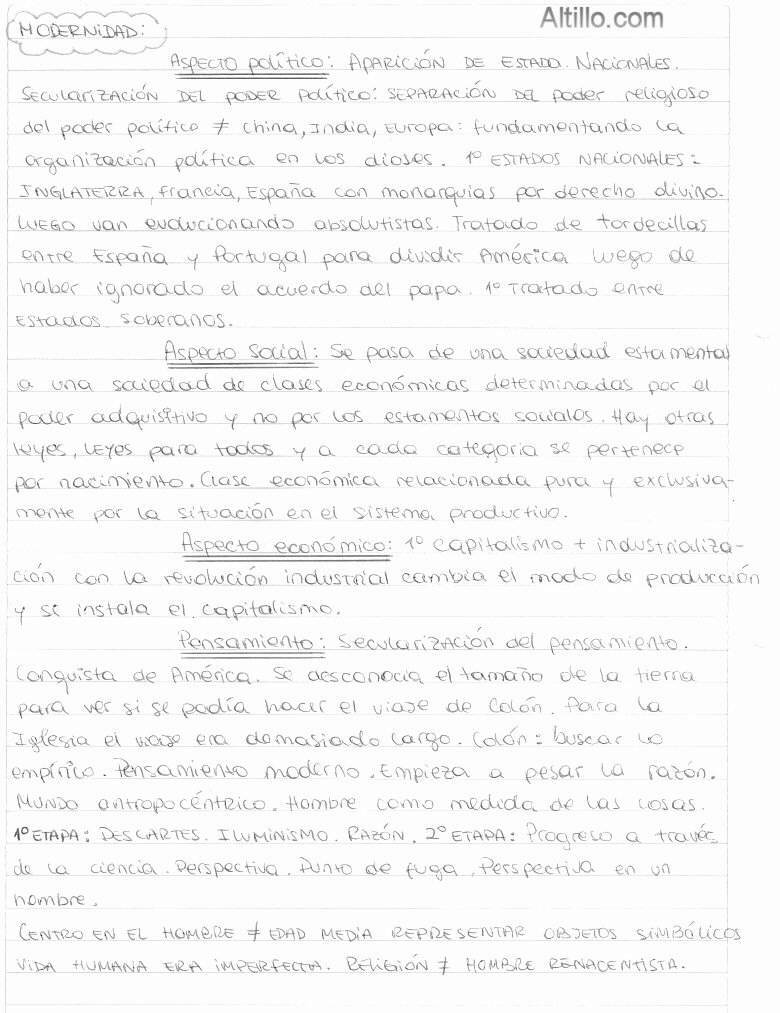 Altillo.com
MODERNIDAD:
ASPECTO POLÍTICO: APARICIÓN DE ESTADO. NACIONALES.
SECULARIZACIÓN DEL PODER POLÍTICO: SEPARACIÓN DEL PODER religioso
del poder político ≠ china, INDIA, EUROPA: fundamentando la
organización política en los dioses. 1º ESTADOS NACIONALES:
INGLATERRA, francia, España con monarquías por derecho divino.
LUEGO van evolucionando absolutistas. Tratado de tordecillas
entre España y Portugal para dividir América luego de
haber ignorado el acuerdo del papa. 1º Tratado entre
Estados soberanos.
Aspecto Social: Se pasa de una sociedad estamental
a una sociedad de clases económicas determinadas por el
poder adquisitivo y no por los estamentos sociales. Hay otras
leyes, LEYES para todos y a cada categoria se pertenece
por nacimiento. Clase económica relacionada pura y exclusiva-
mente por la situación en el sistema productivo.
Aspecto económico: 1º capitalismo + industrializa-
ción con la revolución industrial cambia el modo de producción
y se instala el capitalismo.
Pensamiento: Secularización del pensamiento.
Conquista de América. Se desconocia el tamaño de la tierra
para ver si se podía hacer el viaje de Colón. Para la
Iglesia el viaje era demasiado largo. Colón: buscar lo
empírico. Pensamiento moderno. Empieza a pesar la razón.
MUNDO antropocéntrico. Hombre como medida de las cosas.
1º ETAPA: DESCARTES. ILUMINISMO. RAZÓN. 2º ETAPA: Progreso a través
de la ciencia. Perspectiva. Punto de fuga. Perspectiva en un
hombre.
CENTRO EN EL HOMBRE ≠ EDAD MEDIA REPRESENTAR OBJETOS SIMBÓLICOS
VIDA HUMANA ERA IMPERFECTA. RELIGIÓN ≠ HOMBRE RENACENTISTA.